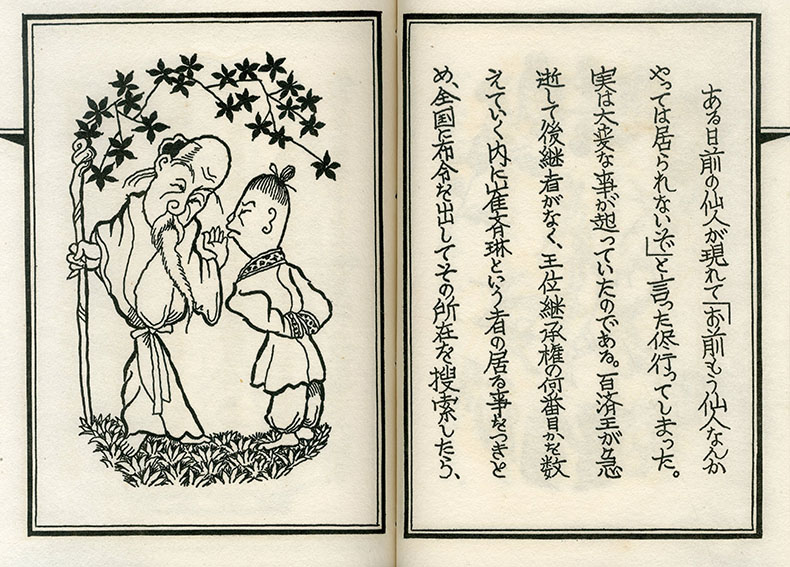 ある日前の仙人が現れて「お前もう仙人なんか
やっては居られないぞ」と言った侭行ってしまった。
実は大変な事が起っていたのである。百済王が急
逝して後継者がなく、王位継承権の何番目かを数
えていく内に崔斉琳という者の居る事をつきと
め、全国に布令を出してその所在を捜索したら、